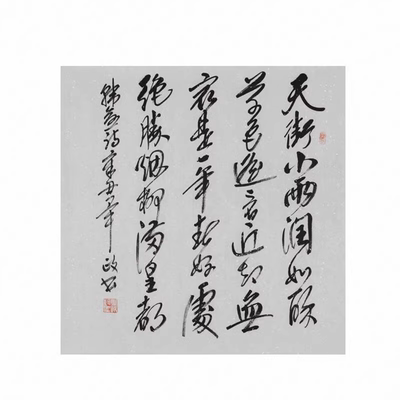 天街小雨润如酥
草色遥看近却無
最是一年春好處
绝勝烟柳满皇都
韩愈诗辛丑年政书